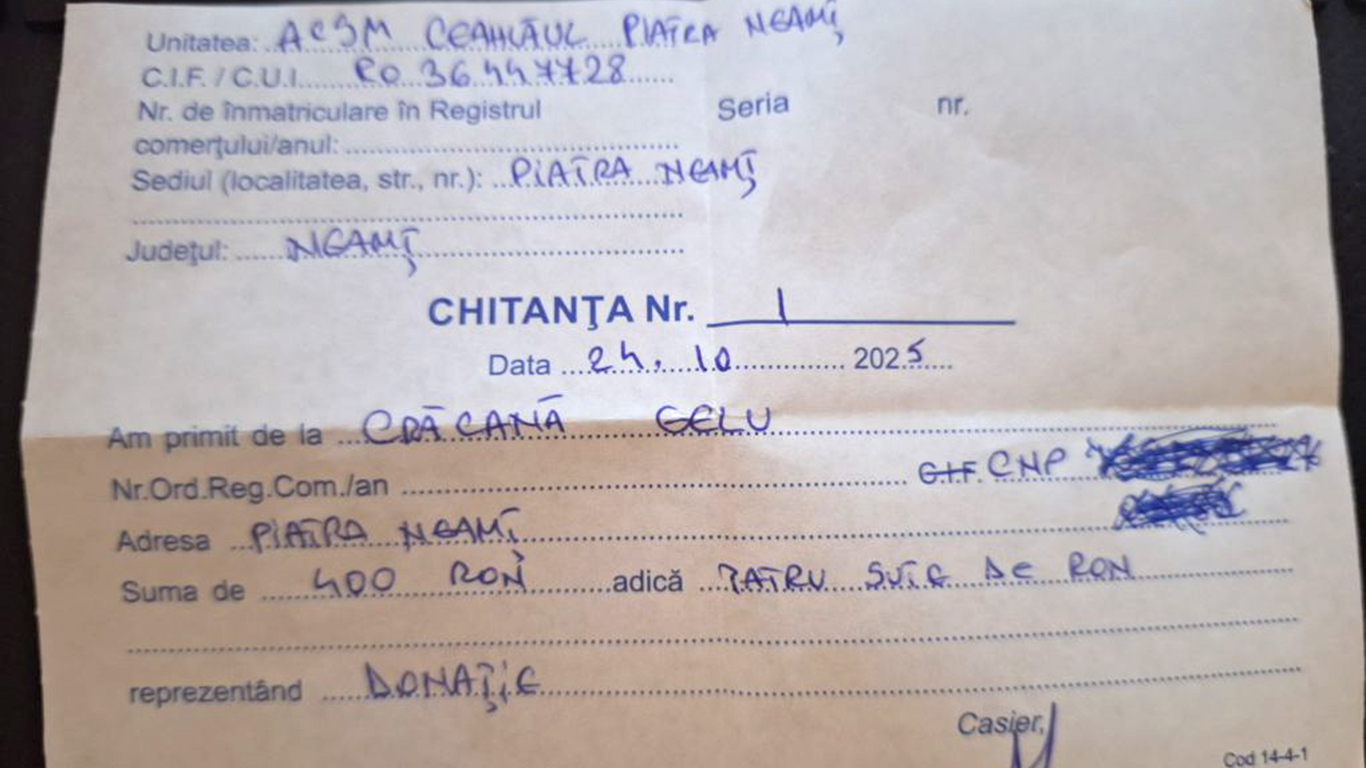 Unitatea: ACSM CEAHLĂUL PIATRA NEAMȚ
C.I.F. / C.U.I. RO 36447728
Nr. de înmatriculare în Registrul
comerţului/anul:
Seria nr.
Sediul (localitatea, str., nr.): PIATRA NEAMȚ
Judeţul: NEAMȚ
CHITANŢA Nr. 1
Data 24.10 2025
Am primit de la CRĂCANĂ GELU
Nr.Ord.Reg.Com./an C.I.F. CNP
Adresa PIATRA NEAMȚ
Suma de 400 RON adică PATRU SUTE DE RON
reprezentând DONAȚIE
Casier,
Cod 14-4-1